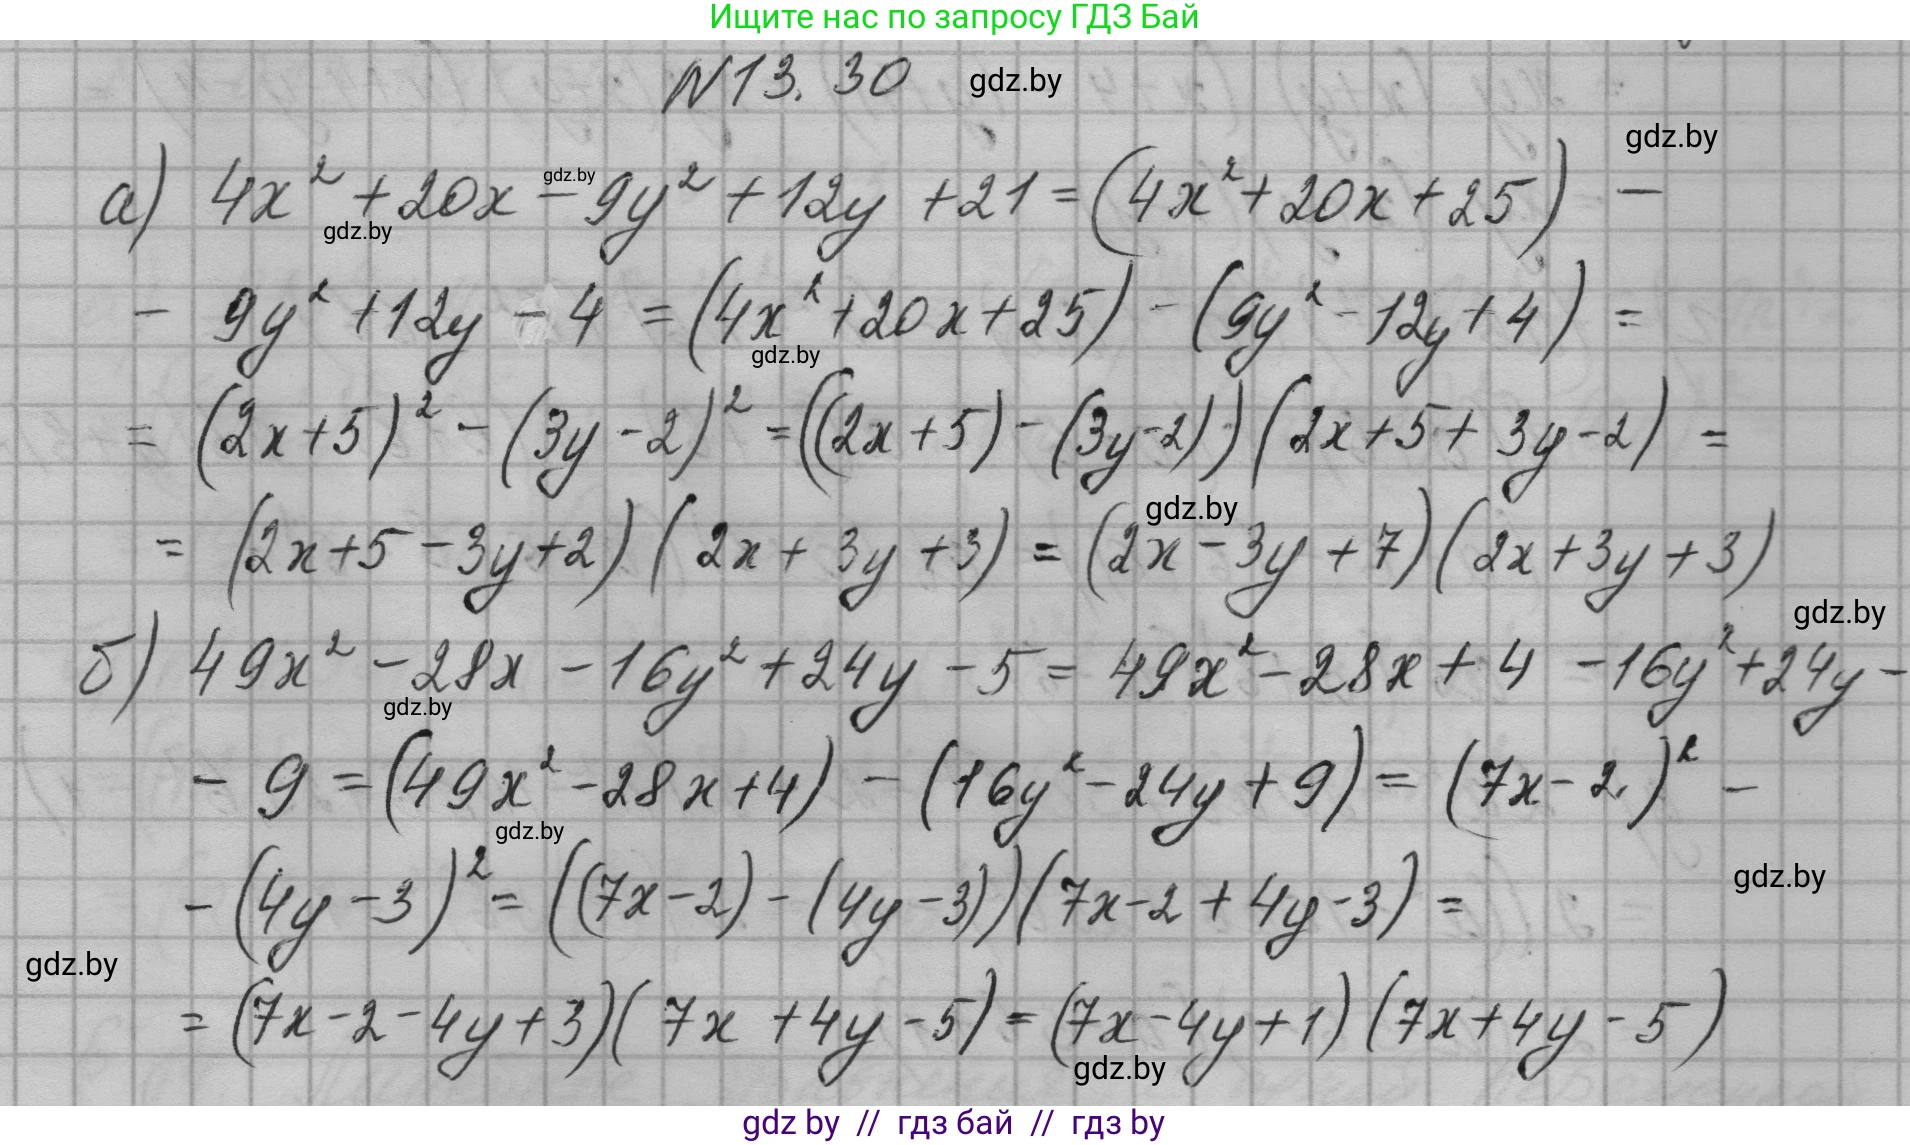 Ищите нас по запросу ГДЗ Бай
N13.30 gdz.by
gdz.by
а) 4x² + 20x - 9y² + 12y + 21 = (4x² + 20x + 25) -
gdz.by
gdz.by
- 9y² + 12y - 4 = (4x² + 20x + 25) - (9y² - 12y + 4) =
gdz.by
= (2x + 5)² - (3y - 2)² = ((2x + 5) - (3y - 2))(2x + 5 + 3y - 2) =
gdz.by
= (2x + 5 - 3y + 2)(2x + 3y + 3) = (2x - 3y + 7)(2x + 3y + 3)
gdz.by
б) 49x² - 28x - 16y² + 24y - 5 = 49x² - 28x + 4 - 16y² + 24y -
gdz.by
- 9 = (49x² - 28x + 4) - (16y² - 24y + 9) = (7x - 2)² -
gdz.by
- (4y - 3)² = ((7x - 2) - (4y - 3))(7x - 2 + 4y - 3) =
gdz.by
gdz.by
= (7x - 2 - 4y + 3)(7x + 4y - 5) = (7x - 4y + 1)(7x + 4y - 5)
gdz.by
gdz by // гдз бай // гдз by